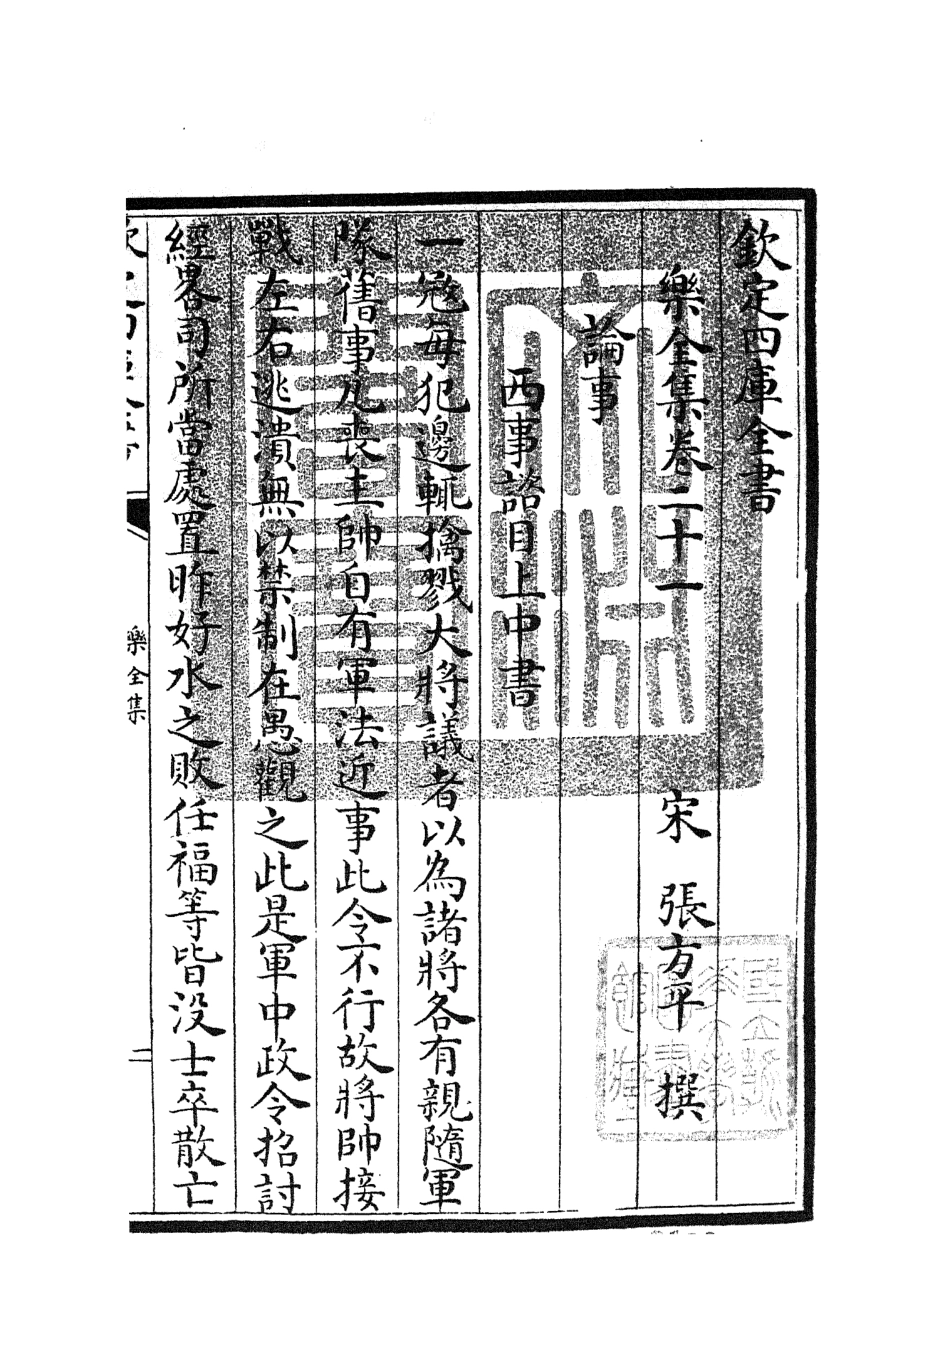 欽定四庫全書
樂全集卷二十一　宋　張方平　撰
論事
西事諮目上中書
一寇每犯邊輒擒戮大將議者以為諸將各有親隨軍
隊舊事凡喪主帥自有軍法近事此令不行故將帥接
戰左右逃潰無以禁制在愚觀之此是軍中政令招討
經畧司所當處置昨好水之敗任福等皆没士卒散亡
樂全集
二